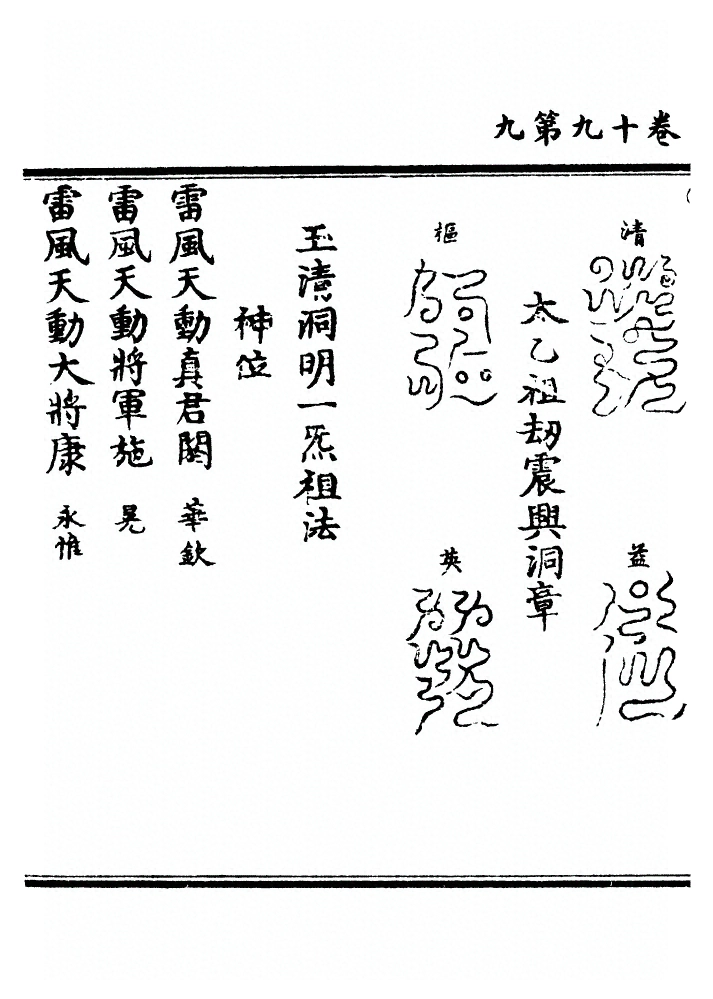 卷十九第九
清
益
太乙祖刼震興洞章
樞
英
玉清洞明一炁祖法
神位
雷風天動真君闗 華欽
雷風天動將軍施 晃
雷風天動大將康 永惟